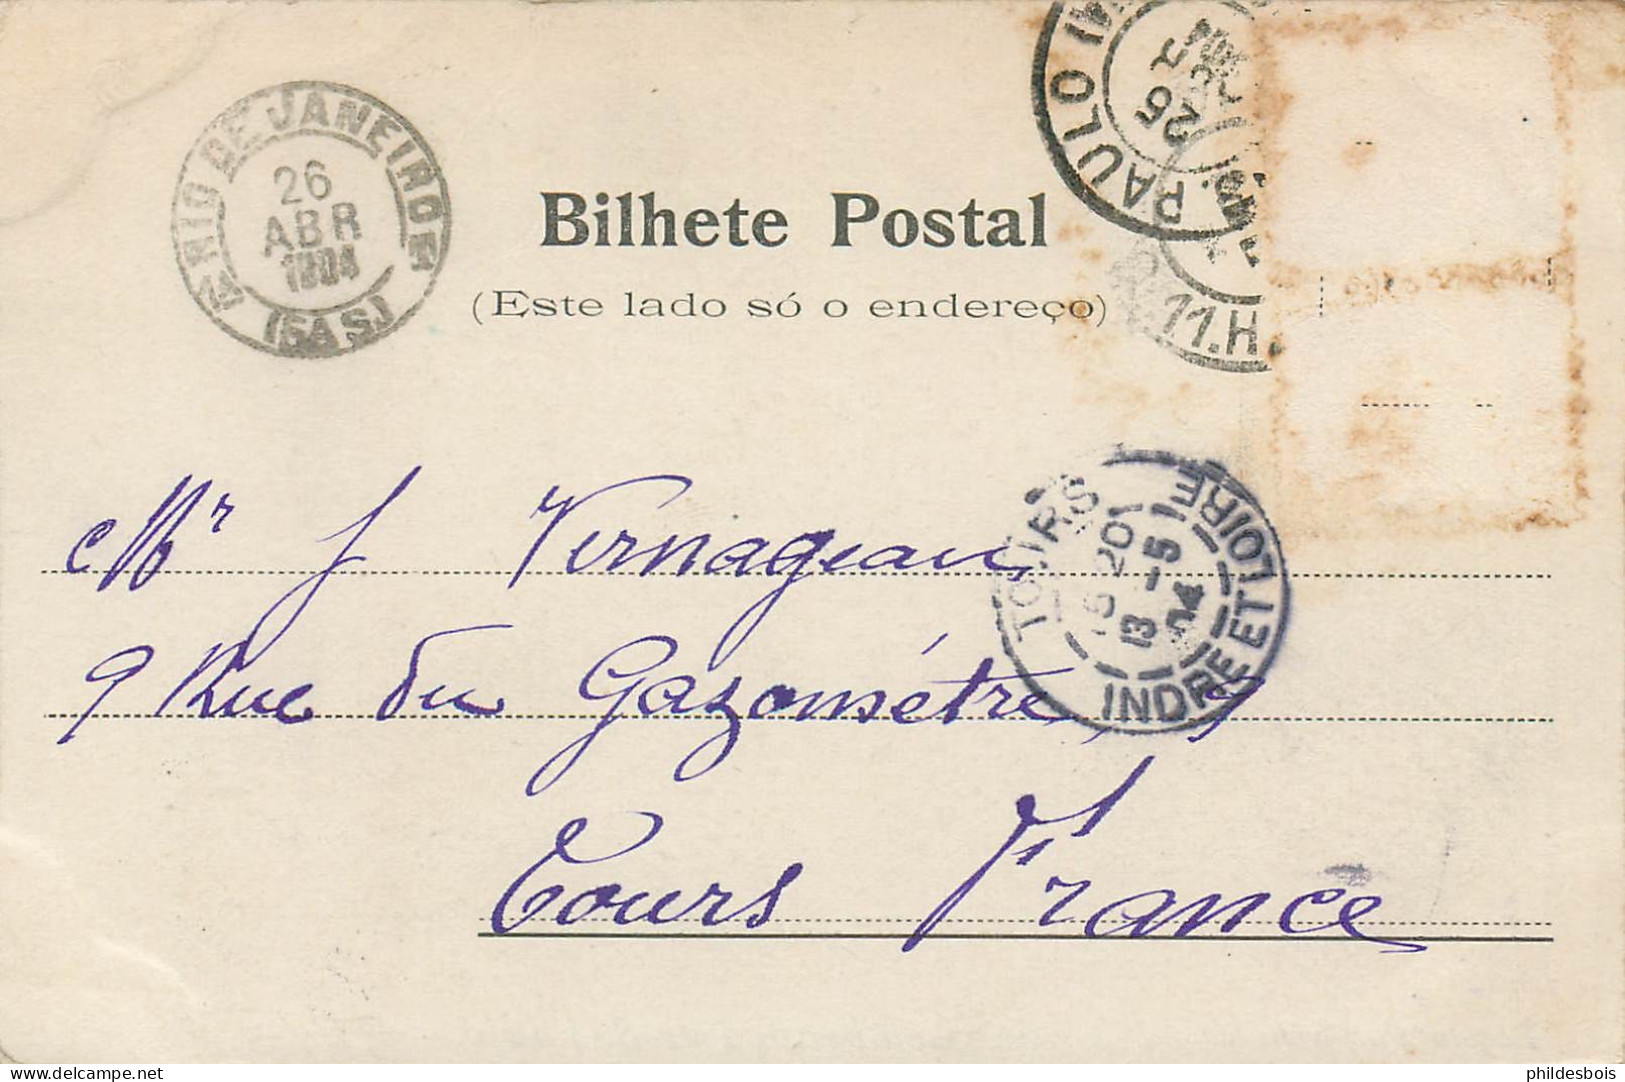 RIO DE JANEIRO
26
ABR
1904
(5ª S.)
PAULO
25
11.H.
Bilhete Postal
(Este lado só o endereço)
TOURS
13 -5
04
INDRE ET LOIRE
Mr J Vernageau
9 Rue du Gazométre, 9
Tours France
delcampe.net
phildesbois